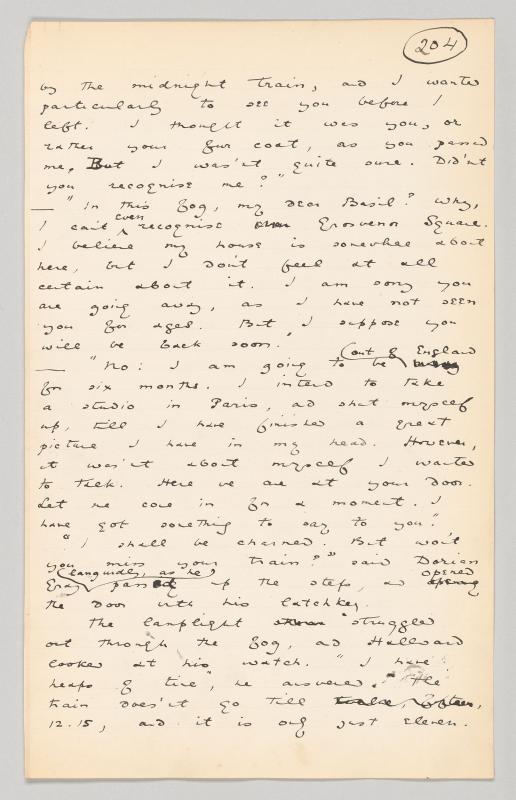 204
by the midnight train, and I wanted
particularly to see you before I
left. I thought it was you, or
rather your fur coat, as you passed
me. But I wasn't quite sure. Didn't
you recognise me?"
— "In this fog, my dear Basil? Why,
I can't even recognise Grosvenor Square.
I believe my house is somewhere about
here, but I don't feel at all
certain about it. I am sorry you
are going away, as I have not seen
you for ages. But I suppose you
will be back soon."
— "No: I am going to be out of England
for six months. I intend to take
a studio in Paris, and shut myself
up, till I have finished a great
picture I have in my head. However,
it wasn't about myself I wanted
to talk. Here we are at your door.
Let me come in for a moment. I
have got something to say to you."
"I shall be charmed. But won't
you miss your train?" said Dorian
Gray languidly, as he passed up the steps, and opened
the door with his latchkey.
The lamplight struggled
out through the fog, and Hallward
looked at his watch. "I have
heaps of time", he answered. "The
train doesn't go till
12.15, and it is only just eleven.